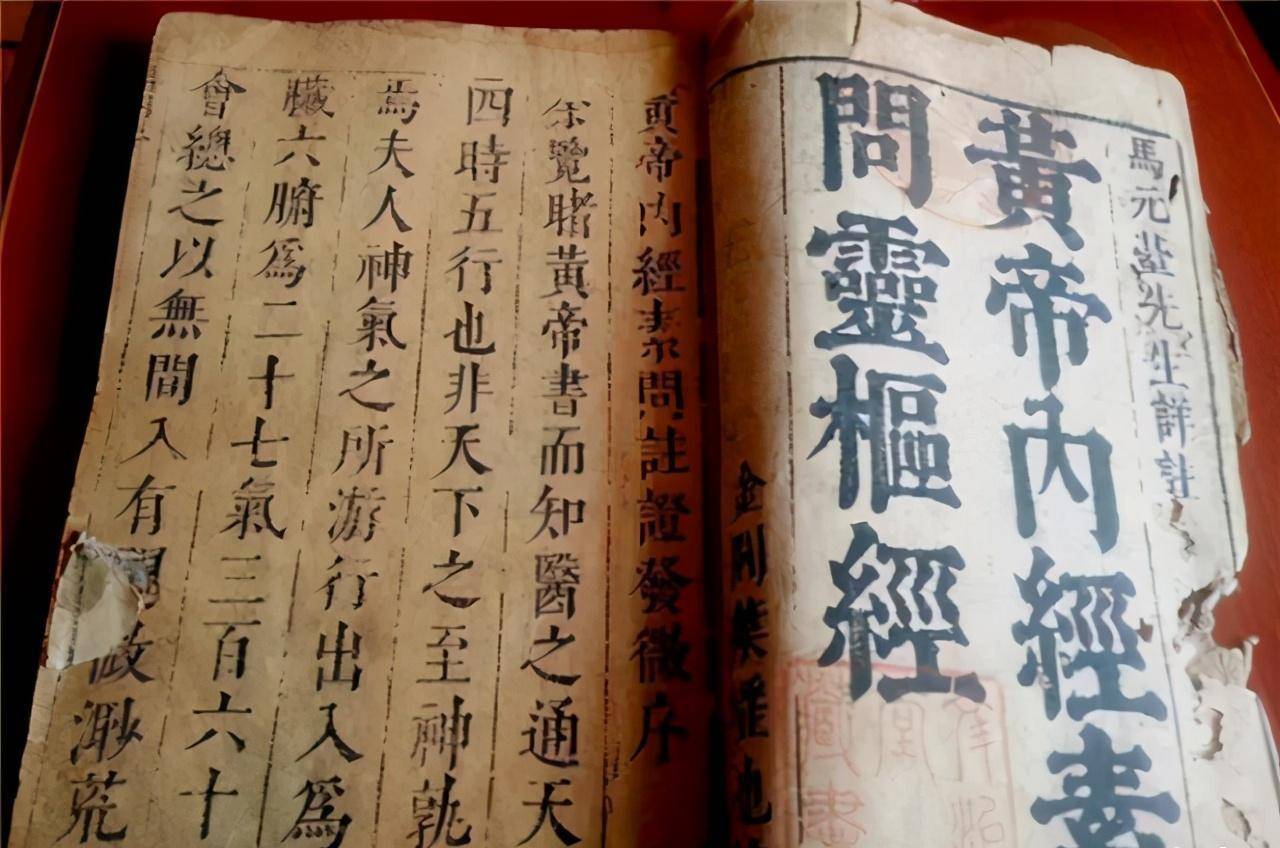 馬元臺先生詳註
黃帝內經素
問靈樞經
黃帝內經素問註證發微序
余覽睹黃帝書而知醫之通天
四時五行也非天下之至神孰
焉夫人神氣之所游行出入爲
臟六腑爲二十七氣三百六十
會總之以無間入有